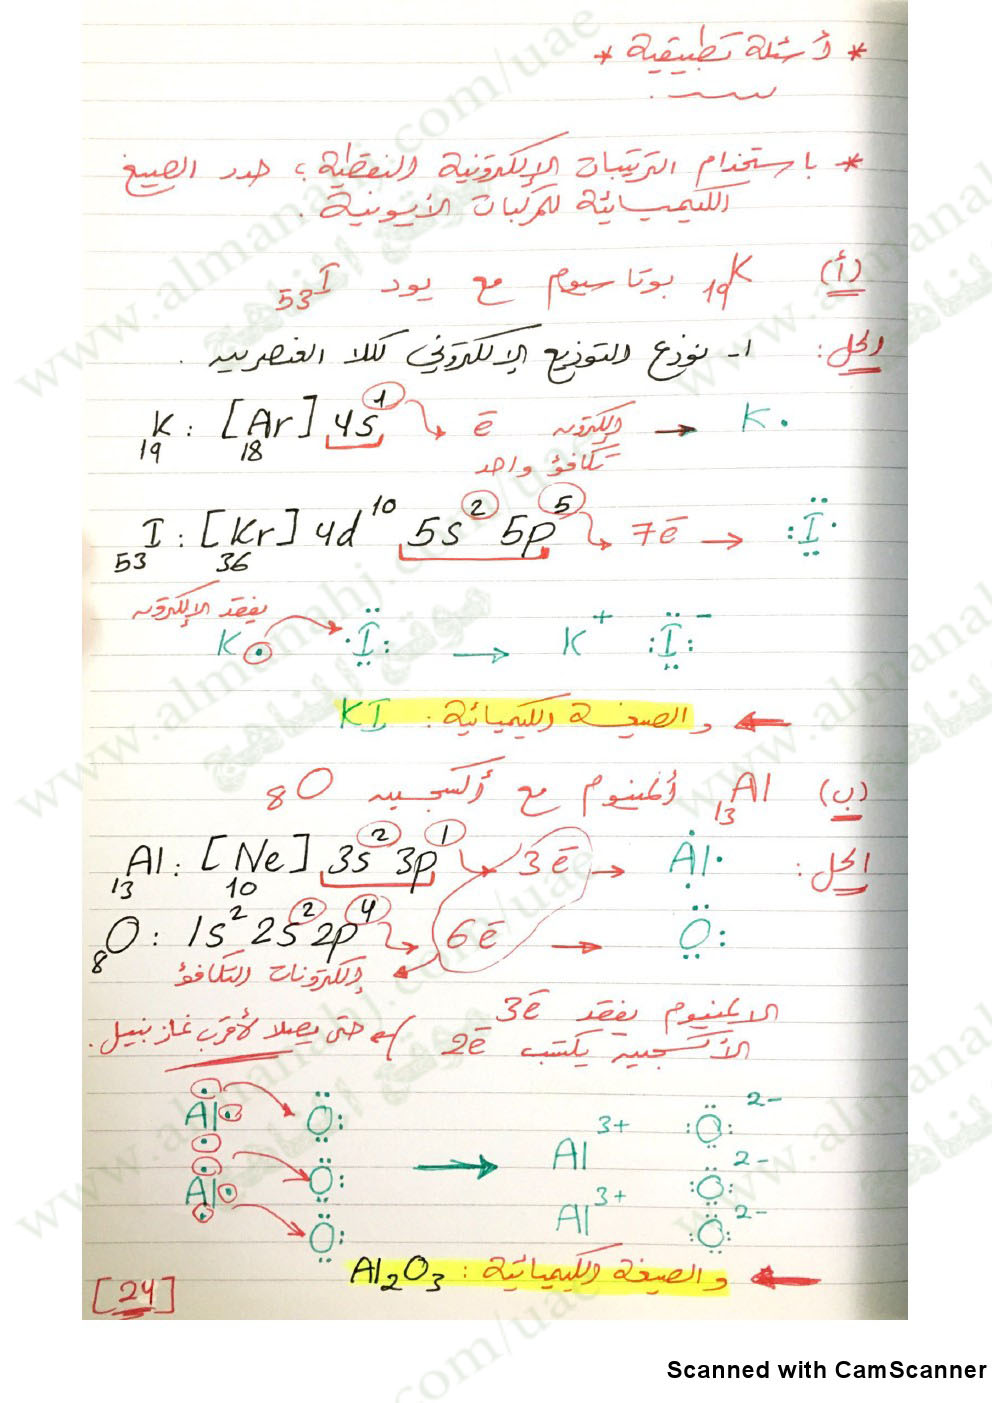 * أسئلة تطبيقية *
* باستخدام الترتيبات الإلكترونية النقطية، حدد الصيغ
الكيميائية للمركبات الأيونية.
(أ) ₁₉K بوتاسيوم مع يود ₅₃I
الحل: 1- نوزع التوزيع الإلكتروني لكلا العنصرين.
₁₉K : [₁₈Ar] 4s¹ → ē إلكترون تكافؤ واحد → K·
₅₃I : [₃₆Kr] 4d¹⁰ 5s² 5p⁵ → 7ē → I
يفقد الإلكترون
K· I → K⁺ I⁻
والصيغة الكيميائية: KI
(ب) ₁₃Al ألمنيوم مع أكسجين ₈O
الحل: ₁₃Al : [₁₀Ne] 3s² 3p¹ → 3ē → Al
₈O : 1s² 2s² 2p⁴ → 6ē → O
إلكترونات التكافؤ
الالمنيوم يفقد 3ē
الأكسجين يكتسب 2ē حتى يصلا لأقرب غاز نبيل.
Al O → Al³⁺ O²⁻
O O²⁻
Al O Al³⁺ O²⁻
والصيغة الكيميائية: Al₂O₃
[24]
Scanned with CamScanner
www.almanahj.com/uae
موقع المناهج